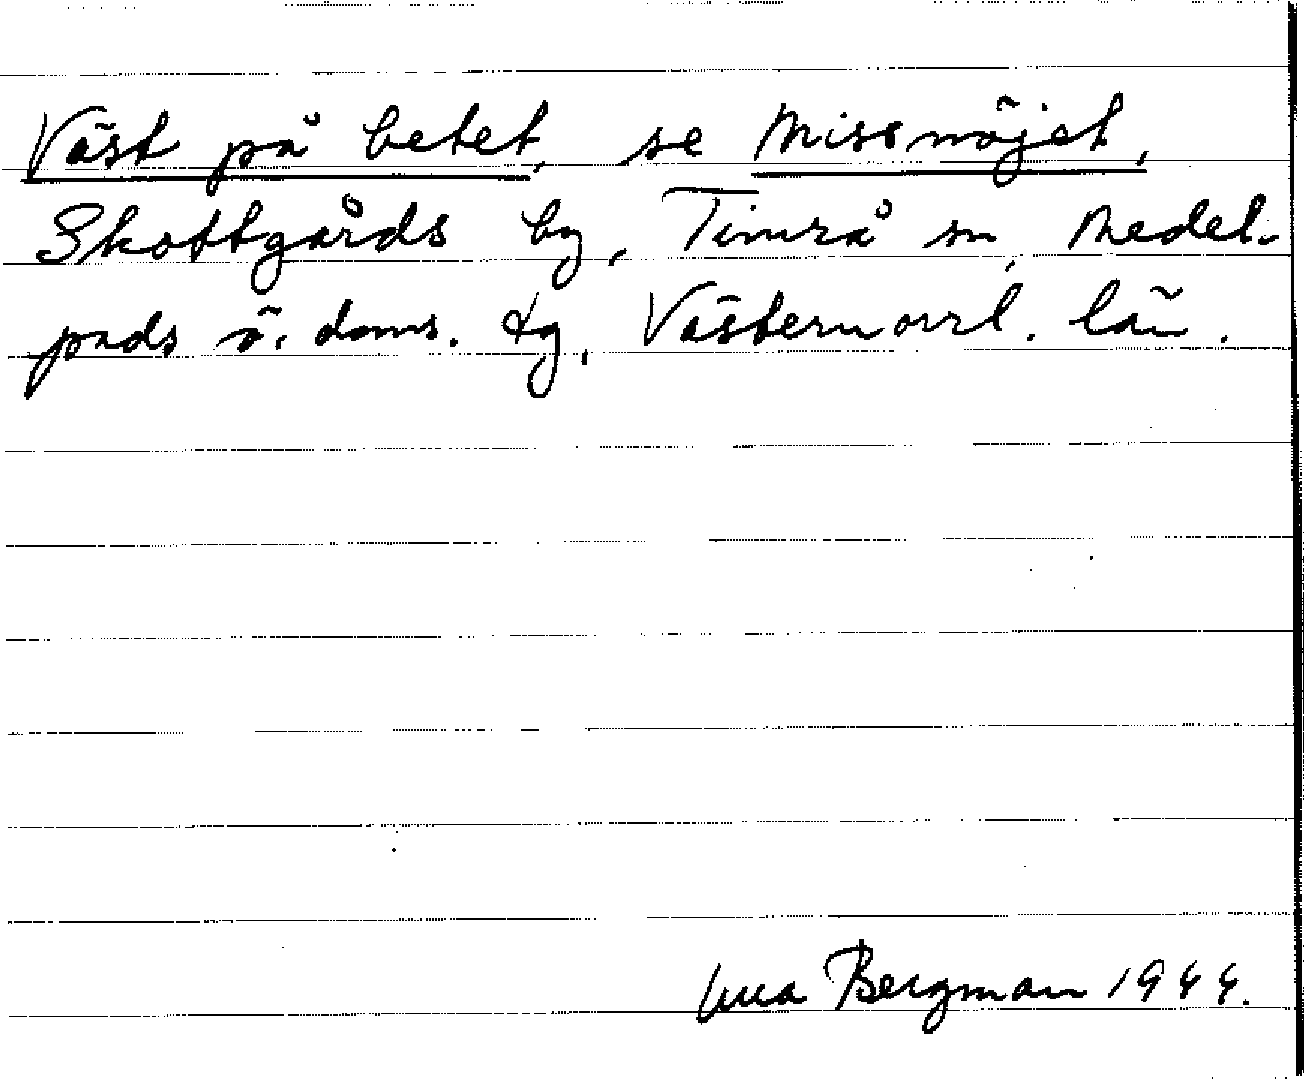 Väst på betet, se Missnöjet,
Skottgårds by, Timrå sn, Medel-
pads ö. doms. tg, Västernorrl. län.
Bergman 1944.